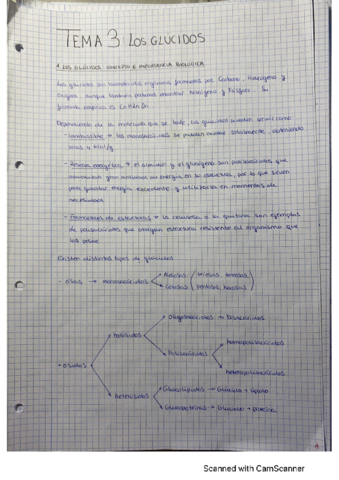 TEMA 3: LOS GLUCIDOS
1. LOS GLÚCIDOS. CONCEPTO E IMPORTANCIA BIOLÓGICA
Los glúcidos son biomoléculas orgánicas formadas por Carbono, Hidrógeno y
Oxígeno, aunque también podemos encontrar Nitrógeno y Fósforo. Su
fórmula empírica es
Dependiendo de la molécula que se trate los glúcidos pueden servir como
- Combustible → los monosacáridos se pueden oxidar totalmente, obteniendo
unas 4 Kcal/g
- Reserva energética → el almidón y el glucógeno son polisacáridos que
acumulan gran cantidad de energía en su estructura, por lo que sirven
para guardar energía excedente y utilizarla en momentos de
necesidad
- Formadores de estructuras → la celulosa o la quitina son ejemplos
de polisacáridos que otorgan estructura resistente al organismo que
los posee
Existen distintos tipos de glúcidos
- Osas → monosacáridos
Aldosas
Cetosas (pentosas, hexosas)
Oligosacáridos → Disacáridos
Holósidos
Homopolisacáridos
Polisacáridos
- Ósidos
Heteropolisacáridos
Glucolípidos → Glúcido + lípido
Heterósidos
Glucoproteínas → Glúcido + proteína
Scanned with CamScanner